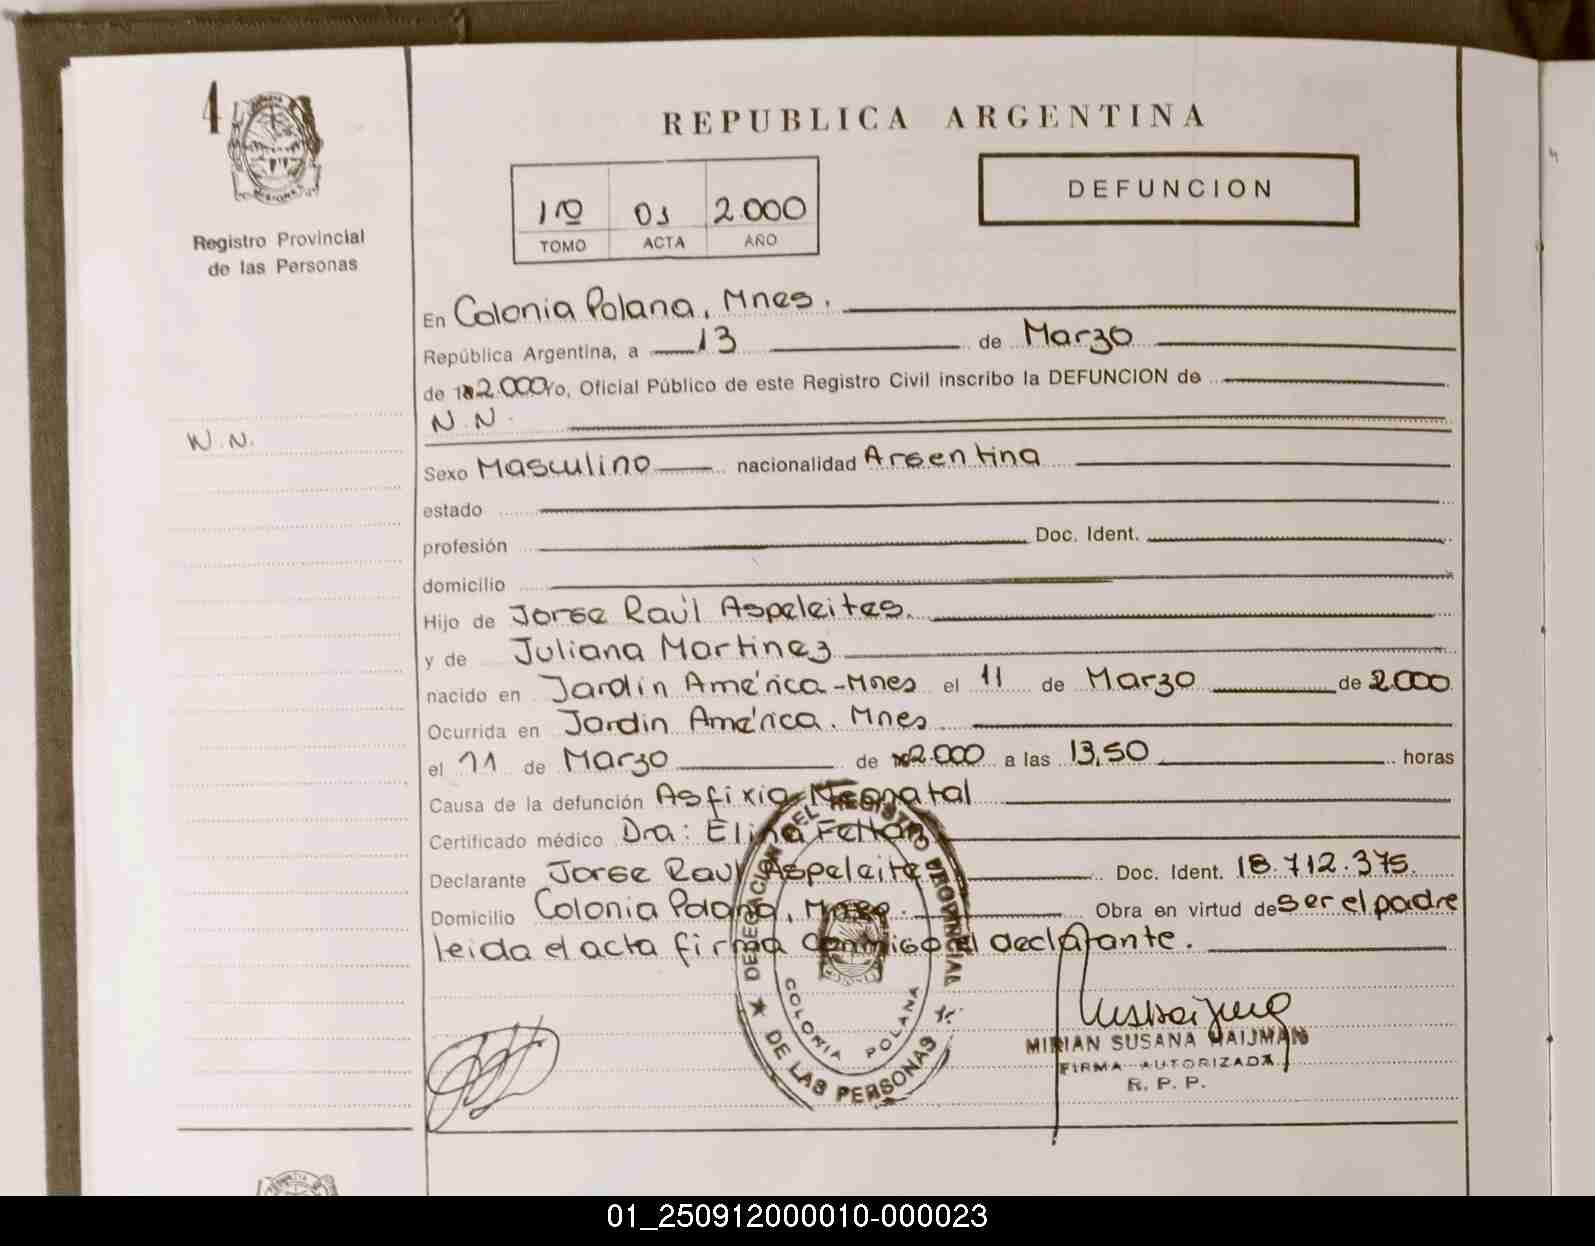 1
Registro Provincial
de las Personas
N.N.
REPUBLICA ARGENTINA
1º 01 2.000
TOMO ACTA AÑO
DEFUNCION
En Colonia Polana, Mnes.
República Argentina, a 13 de Marzo
de 2.000 Yo, Oficial Público de este Registro Civil inscribo la DEFUNCION de
N.N.
Sexo Masculino nacionalidad Argentina
estado
profesión Doc. Ident.
domicilio
Hijo de Jorge Raúl Aspeleites.
y de Juliana Martinez
nacido en Jardin América-Mnes el 11 de Marzo de 2000
Ocurrida en Jardin América. Mnes
el 11 de Marzo de 2.000 a las 13,50 horas
Causa de la defunción Asfixia Neonatal
Certificado médico Dra: Elina
Declarante Jorge Raul Aspeleite Doc. Ident. 18.712.375.
Domicilio Colonia Polana, Mnes. Obra en virtud de ser el padre
leida el acta firma conmigo el declarante.
DELEGACION DEL REGISTRO PROVINCIAL
DE LAS PERSONAS
COLONIA POLANA
MIRIAN SUSANA WAIJMAN
FIRMA AUTORIZADA
R. P. P.
01_250912000010-000023